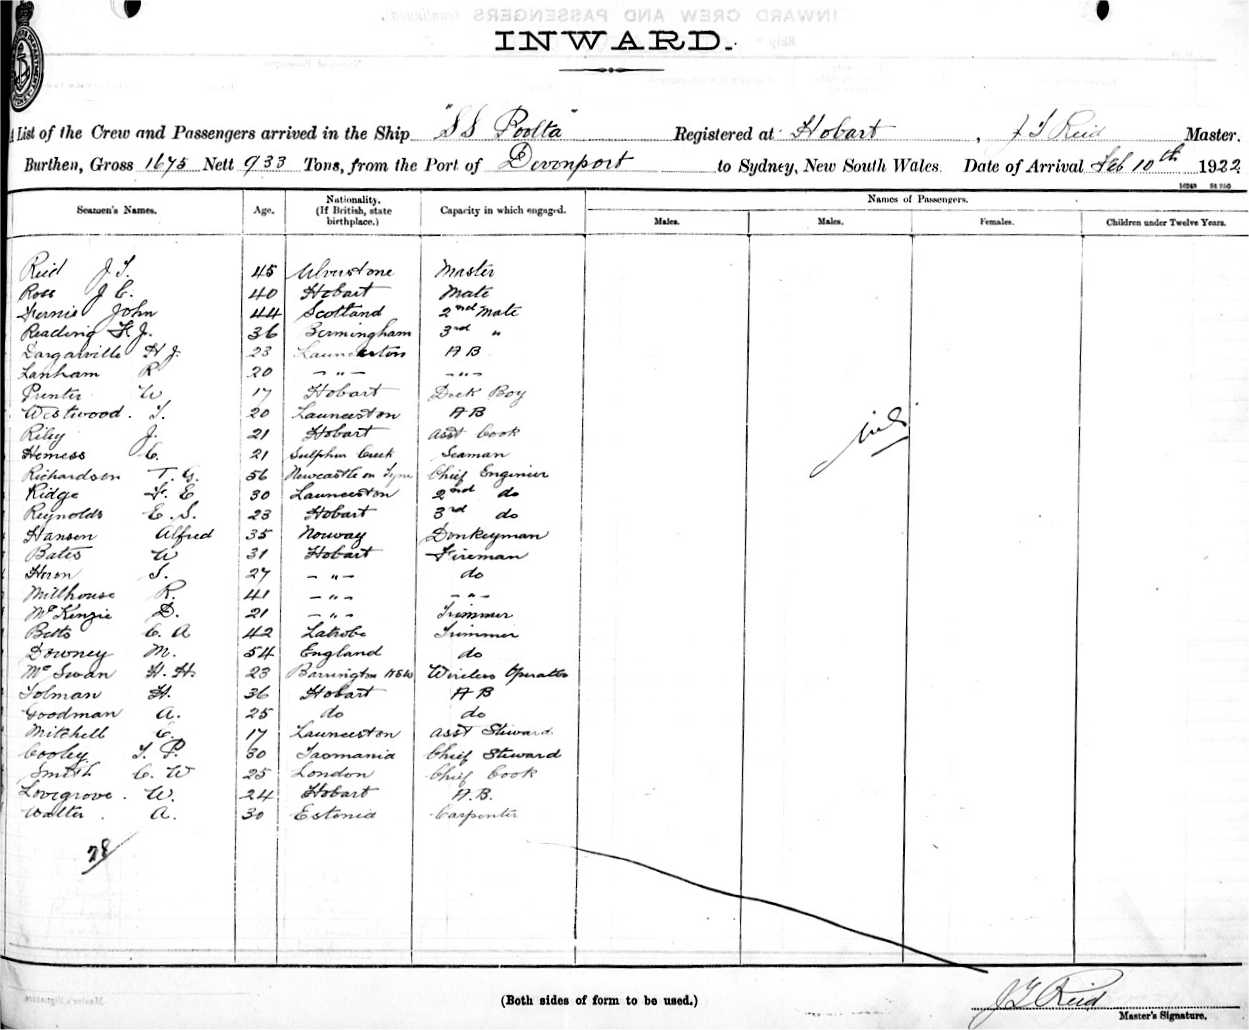 INWARD.
A List of the Crew and Passengers arrived in the Ship "SS Poolta" Registered at Hobart, J T Reid Master.
Burthen, Gross 1675 Nett 933 Tons, from the Port of Devonport to Sydney, New South Wales. Date of Arrival Feb 10th 1922
Seamen's Names. Age. Nationality. (If British, state birthplace.) Capacity in which engaged. Names of Passengers.
Males. Males. Females. Children under Twelve Years.
Reid J T. 45 Ulverstone Master
Ross J C. 40 Hobart Mate
Fernie John 44 Scotland 2nd Mate
Reading F. J. 36 Birmingham 3rd "
Dargaville H J. 23 Launceston A B
Lanham R 20 - " - - " -
Prenter W 17 Hobart Deck Boy
Westwood. T. 20 Launceston A B
Riley J. 21 Hobart Asst Cook
Hemess C. 21 Sulphur Creek Seaman
Richardson T. G. 56 Newcastle on Tyne Chief Engineer
Ridge F. E 30 Launceston 2nd do
Reynolds E. S. 23 Hobart 3rd do
Hansen Alfred 35 Norway Donkeyman
Bates W 31 Hobart Fireman
Heron S. 27 - " - do
Millhouse R. 41 - " - - " -
McKenzie D. 21 - " - Trimmer
Betts C. A 42 Latrobe Trimmer
Downey M. 54 England do
McSwan H. H. 23 Barrington NSW Wireless Operator
Tolman H. 36 Hobart A B
Goodman A. 25 do do
Mitchell C. 17 Launceston Asst Steward
Cooley T. P. 30 Tasmania Chief Steward
Smith C. W 25 London Chief Cook
Lovegrove. W. 24 Hobart A.B.
Walter. A. 30 Estonia Carpenter
28
nil
(Both sides of form to be used.)
J T Reid
Master's Signature.